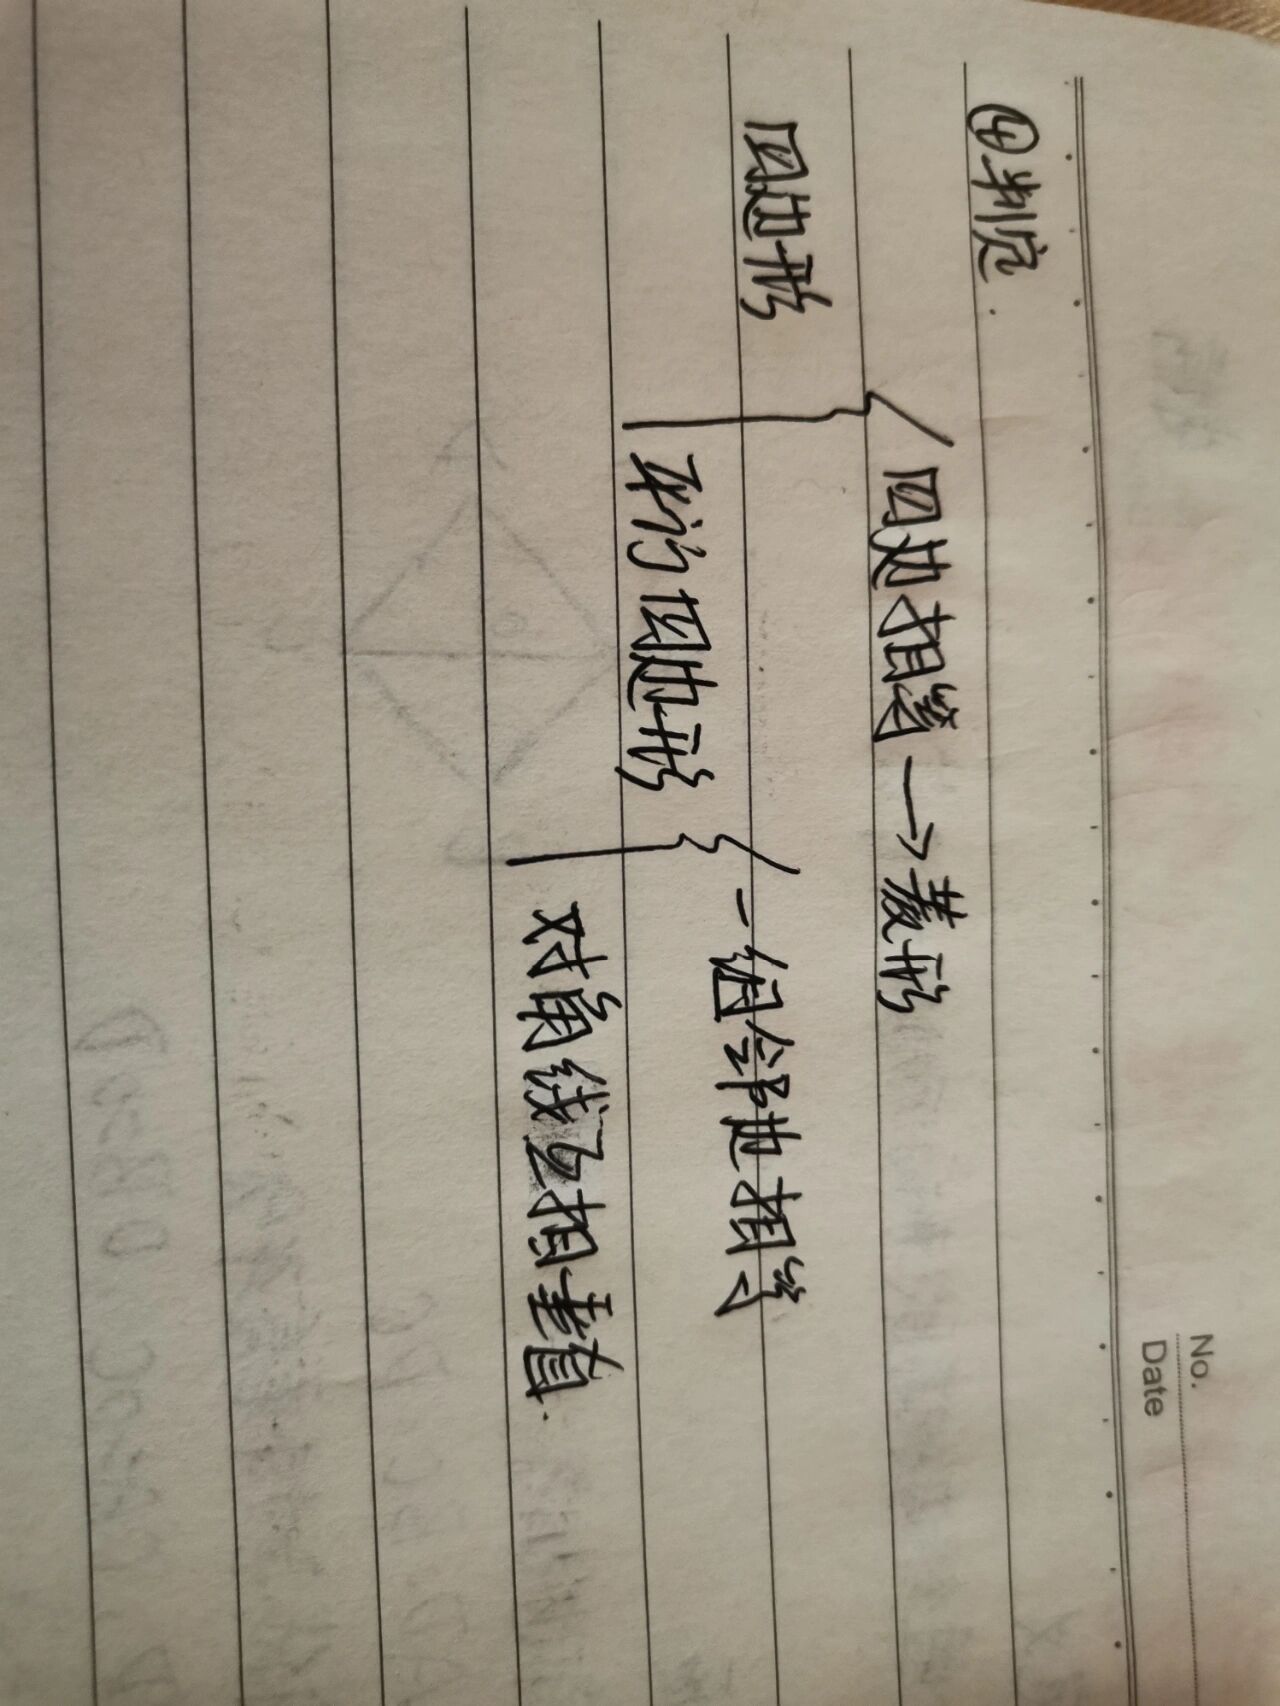 No.
Date
④判定.
四边相等→菱形
四边形
一组邻边相等
平行四边形
对角线互相垂直.